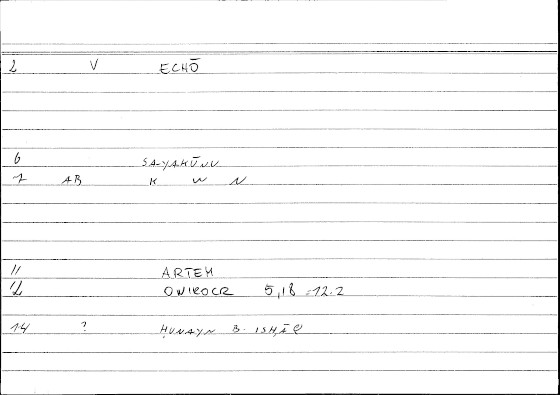 2 V ECHŌ
6 SA-YAKŪNU
7 AB K W N
11 ARTEM
12 ONIROCR 5,18 = 12.2
14 ? ḤUNAYN B. ISḤĀQ